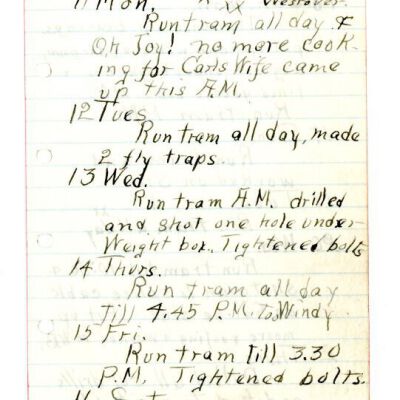 11 Mon. Westover.
Run tram all day &
Oh Joy! no more cook-
ing for Carls Wife came
up this A.M.
12 Tues.
Run tram all day, made
2 fly traps.
13 Wed.
Run tram A.M. drilled
and shot one hole under
Weight box. Tightened bolts
14 Thurs.
Run tram all day
Till 4.45 P.M. To Windy
15 Fri.
Run tram Till 3.30
P.M. Tightened bolts.